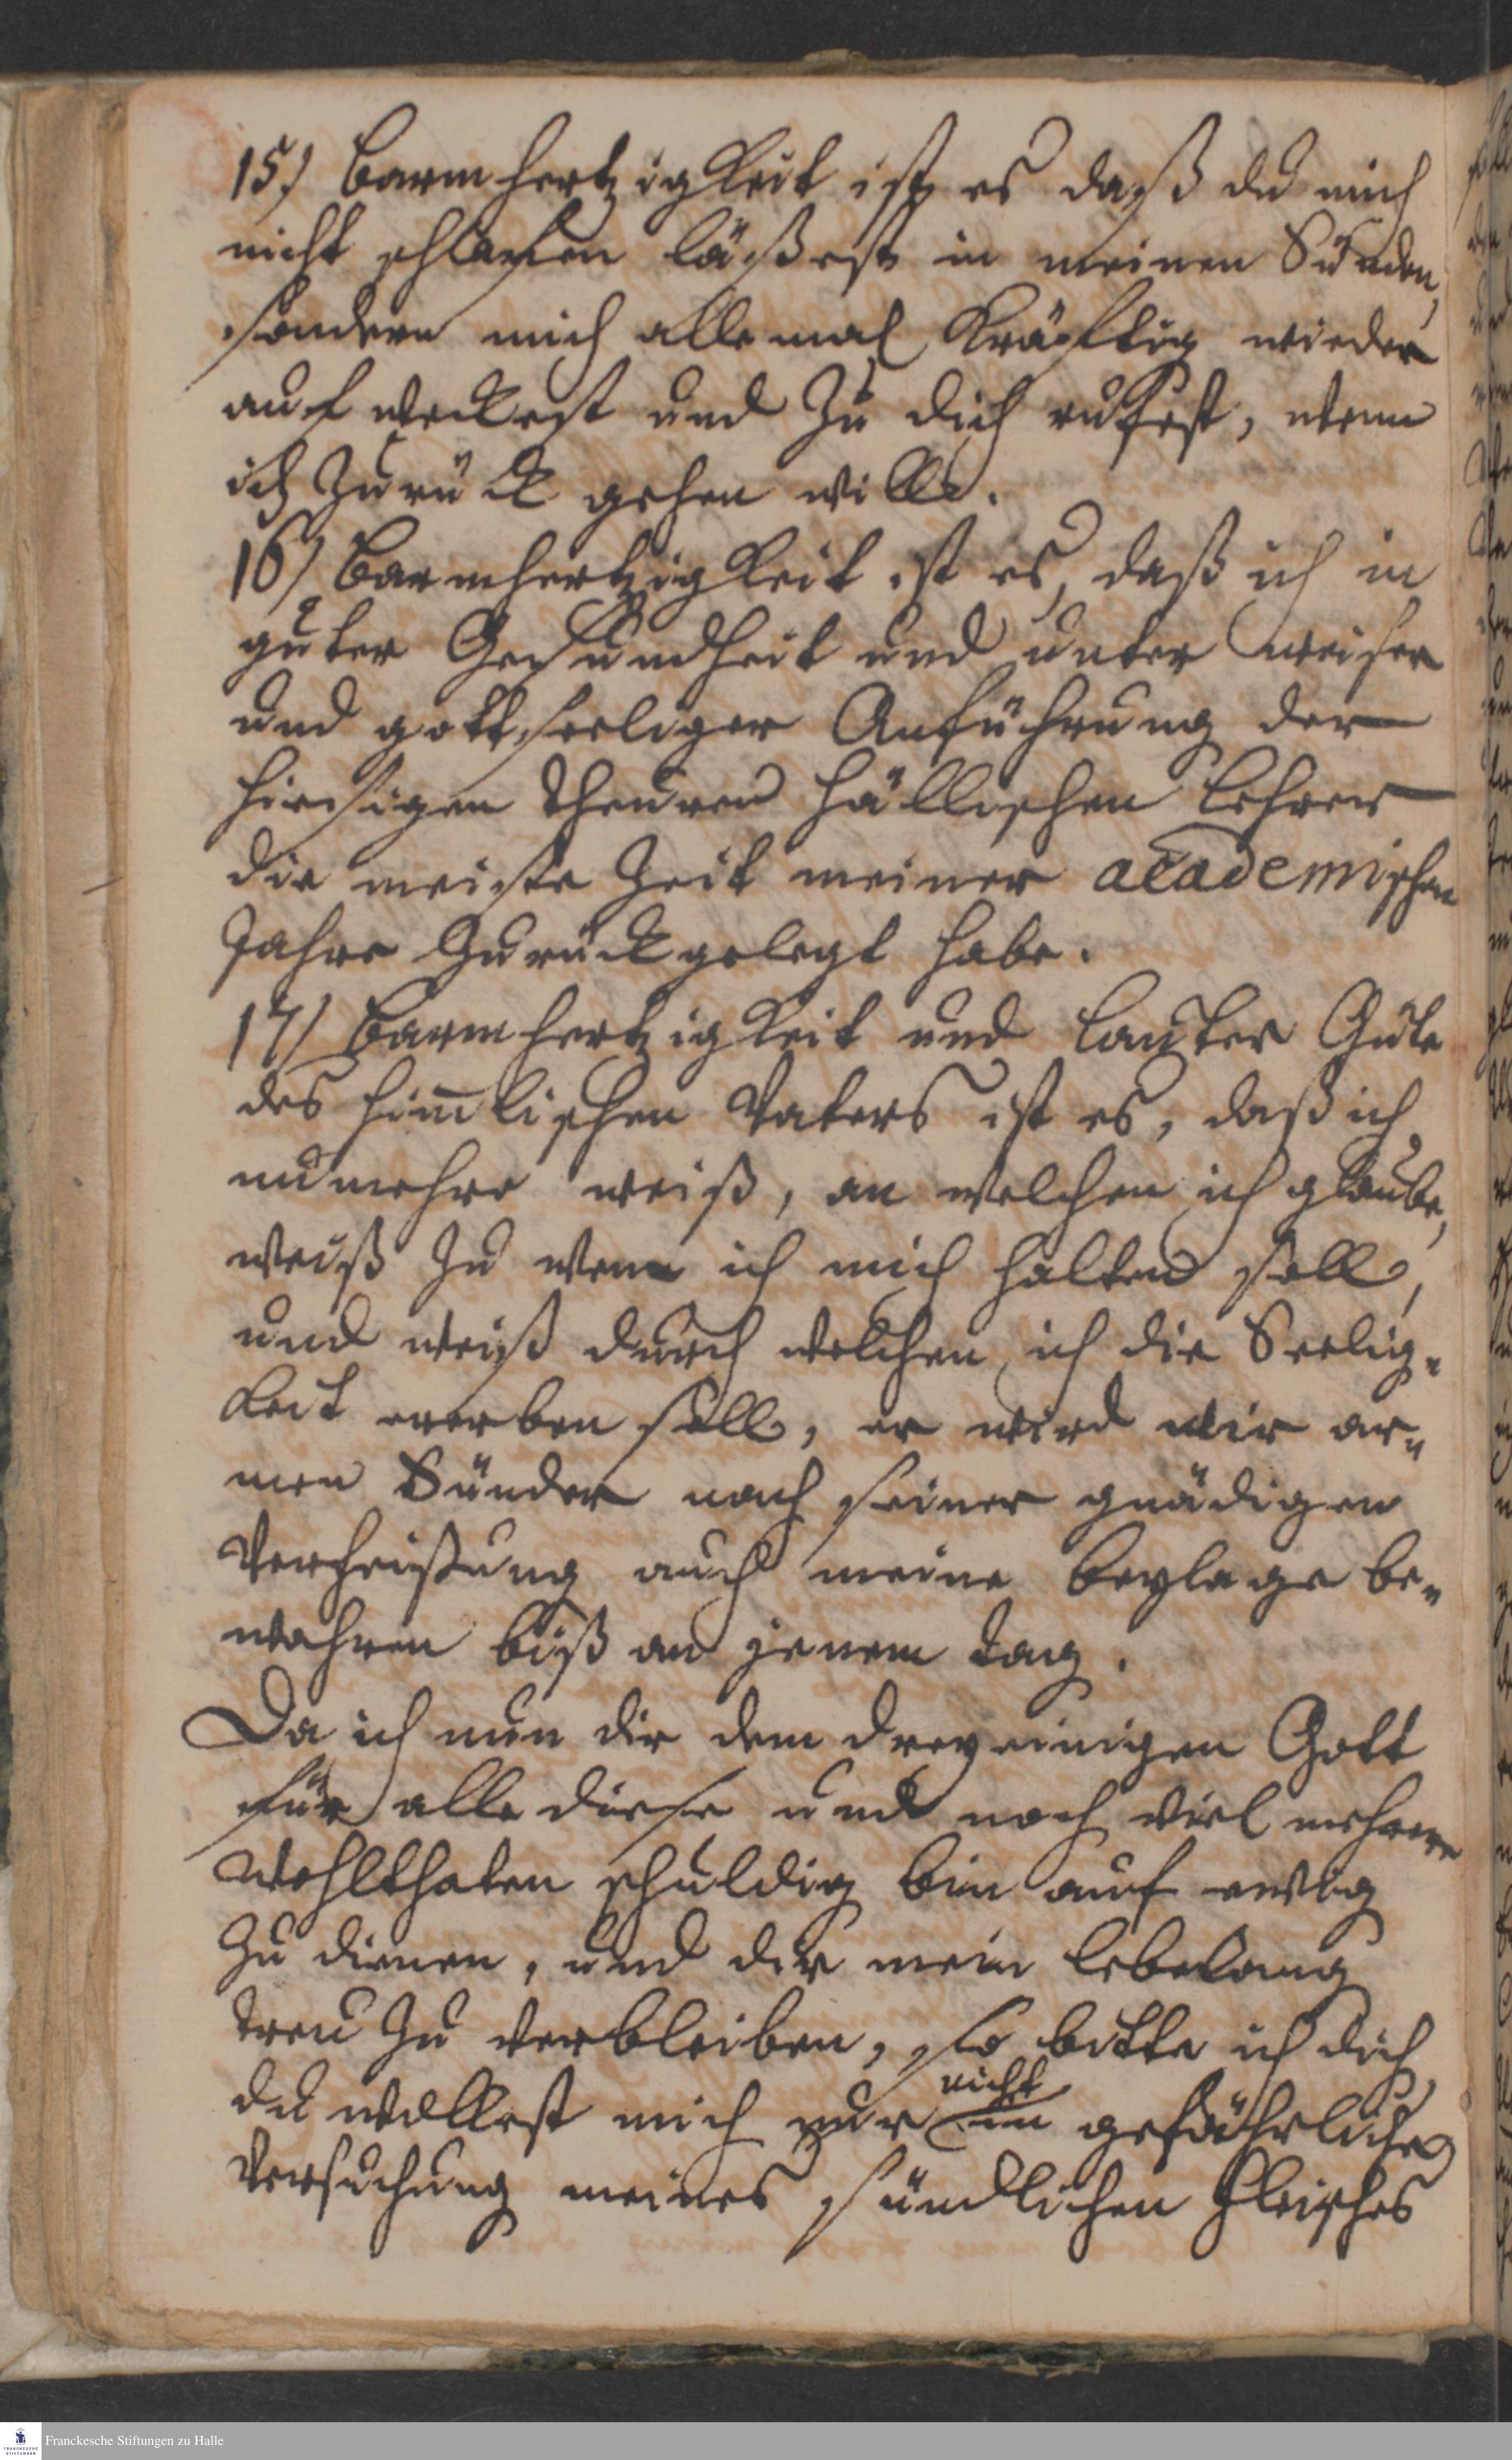 15) Barmhertzigkeit ist es daß du mich
nicht schlafen läßest in meinen Sünden,
sondern mich allemal kräfftig wieder
auf weckest und zu dich rufest, wenn
ich zurück gehen will.
16) Barmhertzigkeit ist es, daß ich in
guter Gesundheit und unter weiser
und gottseeliger Anführung der
hiesigen theuren hällischen Lehrer
die meiste Zeit meiner academischen
Jahre zurückgelegt habe.
17) Barmhertzigkeit und lauter Güte
des him̄lischen Vaters ist es, daß ich
numehro weiß, an welchen ich glaube,
weiß zu wem ich mich halten soll,
und weiß durch welchen ich die Seelig-
keit ererben soll, er wird mir ar-
men Sünder nach seiner gnädigen
Verheißung auch meine beylage be-
wahren biß an jenem tag.
Da ich nun dir dem dreyeinigen Gott
für alle diese und noch viel mehrere
Wohlthaten schuldig bin auf ewig
zu dienen, und dir mein lebelang
treu zu verbleiben, so bitte ich dich,
nicht
du wollest mich nur in gefährliche
Versuchung meines sündlichen Fleisches
Franckesche Stiftungen zu Halle
FRANCKESCHE
STIFTUNGEN